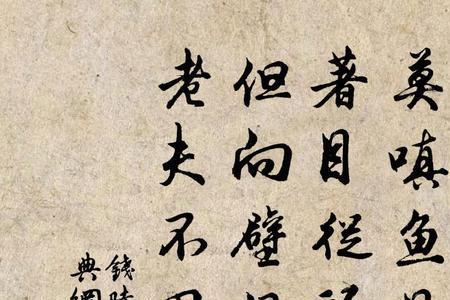 莫嗔魚
著目從
但向壁
老夫不
錢
典網